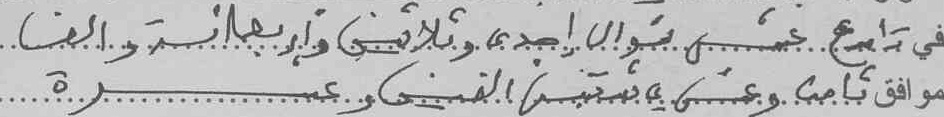 في تاسع عشر شوال إحدى وثلاثين وأربعمائة والف
موافق ثامن وعشري شتنبر الفين وعشرة